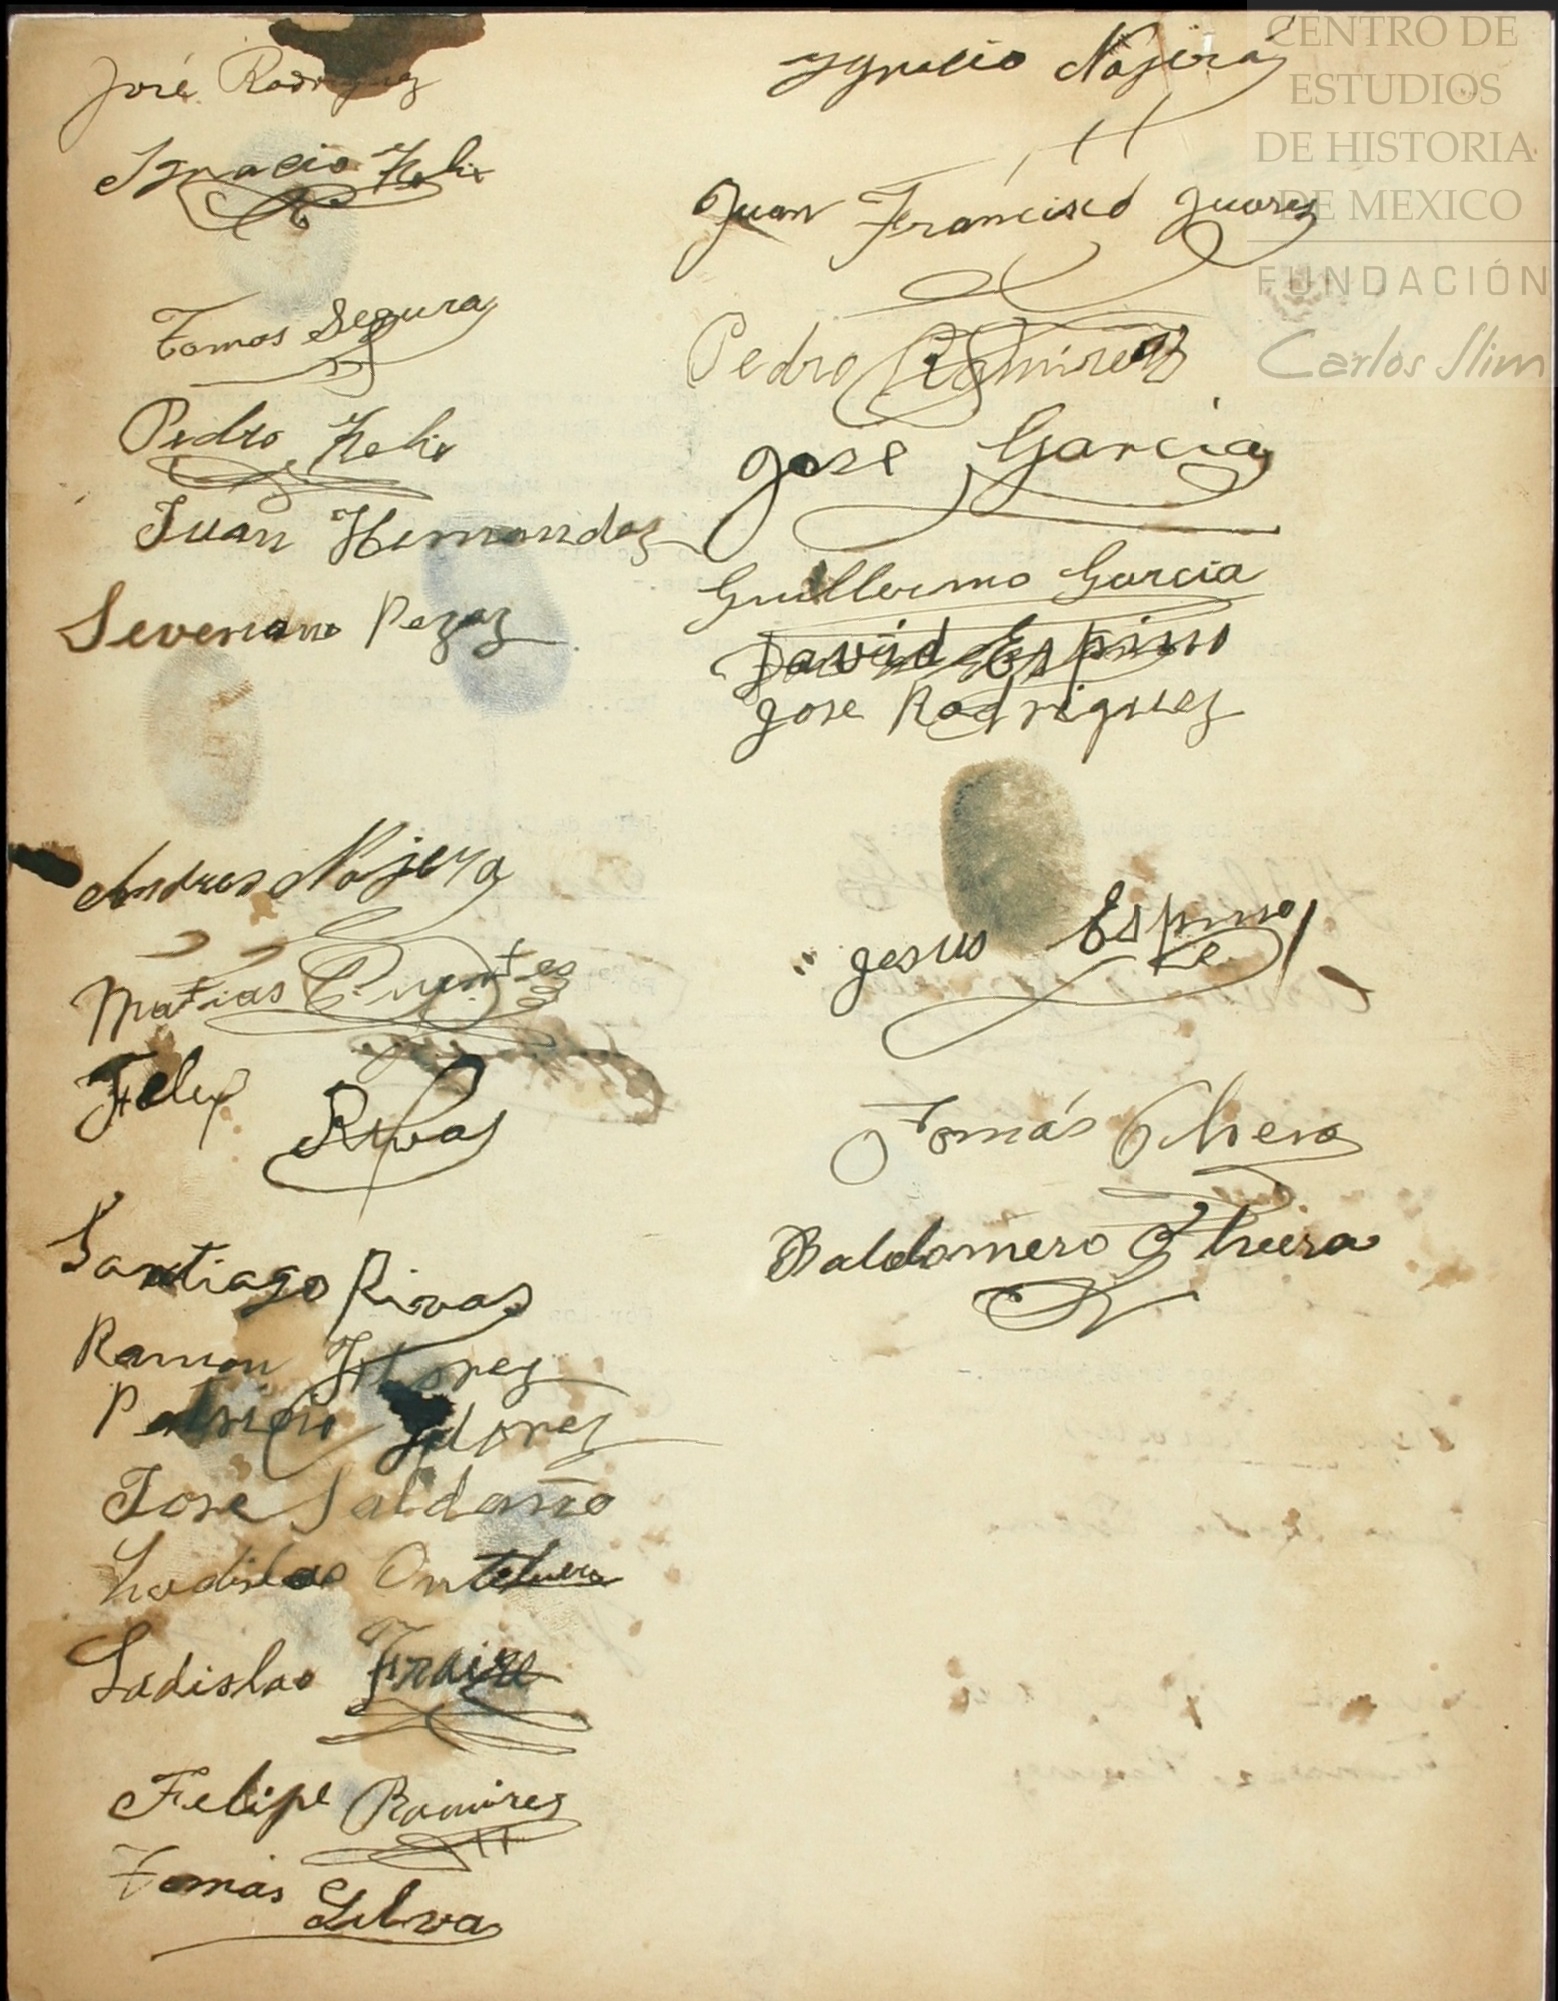 José Rodriguez
Ignacio Felix
Tomas Segura
Pedro Felix
Juan Hernandez
Severiano Perez
Andres Najera
Matias Puentes
Felix Rivas
Santiago Rivas
Ramon Flores
Patricio Flores
Jose Saldaña
Ladislao
Ladislao Fraire
Felipe Ramires
Tomás Silva
Ygnacio Najera
Juan Francisco Juarez
Pedro Ramirez
Jose Garcia
Guillermo Garcia
David Espino
Jose Rodriguez
Jesus Espino
Tomás Olvera
Baldomero Olvera
CENTRO DE
ESTUDIOS
DE HISTORIA
DE MEXICO
FUNDACIÓN
Carlos Slim